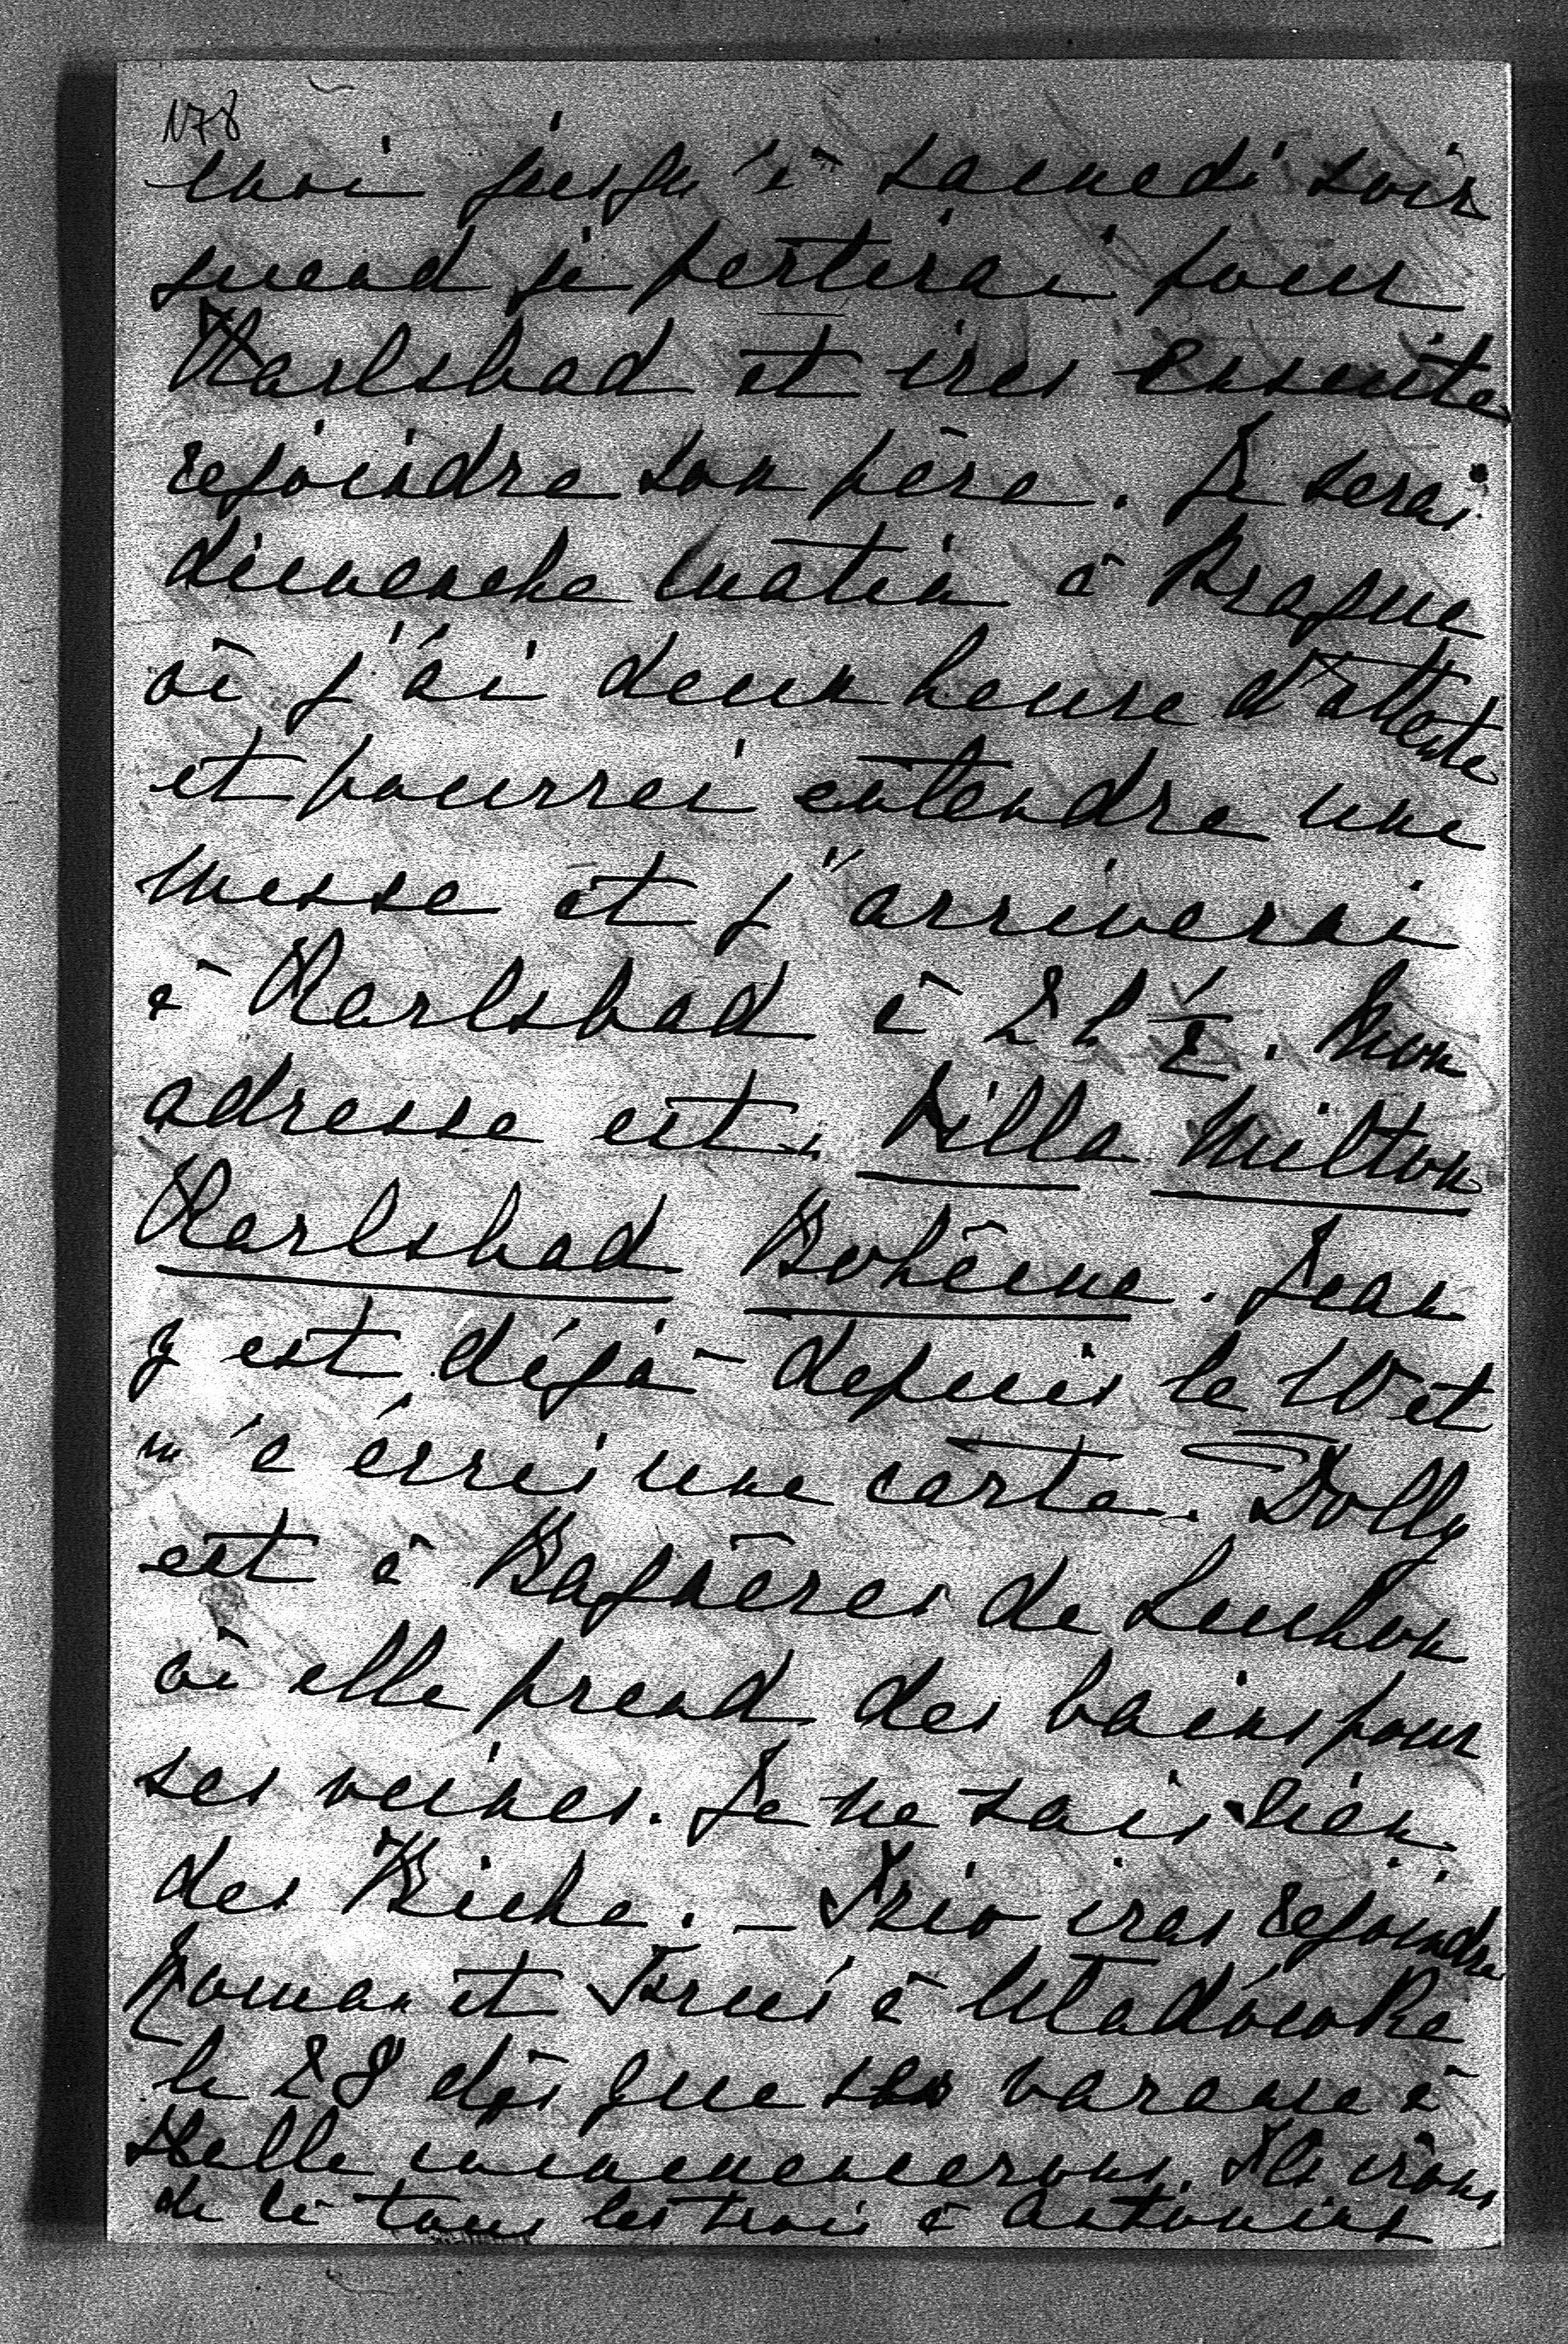 178
moi jusqu'à samedi soir
quand je partirai pour
Karlsbad et iras ensuite
rejoindre son père. Je serai
dimanche matin à Prague
où j'ai deux heure d'attente
et pourrai entendre une
messe et j'arriverai
à Karlsbad à 2 h ½. Mon
adresse est. Villa Milton
Karlsbad Bohême. Jean
y est déjà depuis le 10 et
m'a érris une carte. Dolly
est à Bagnères de Luchon
où elle prend des bains pour
ses veines. Je ne sais rien
des Biche. – iras rejoindre
Roman et à
le 28 dès que ses varance à
Halle commencerons. Ils irons
de là tous les trois à Antonins